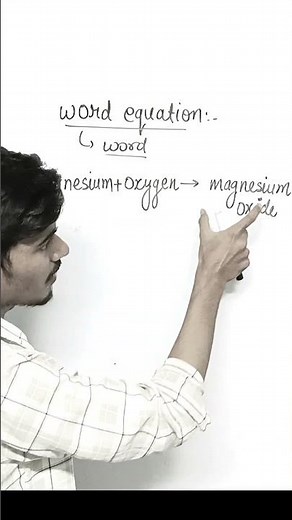 word equation:-
↳ word
nesium+oxygen→ magnesium
oxide